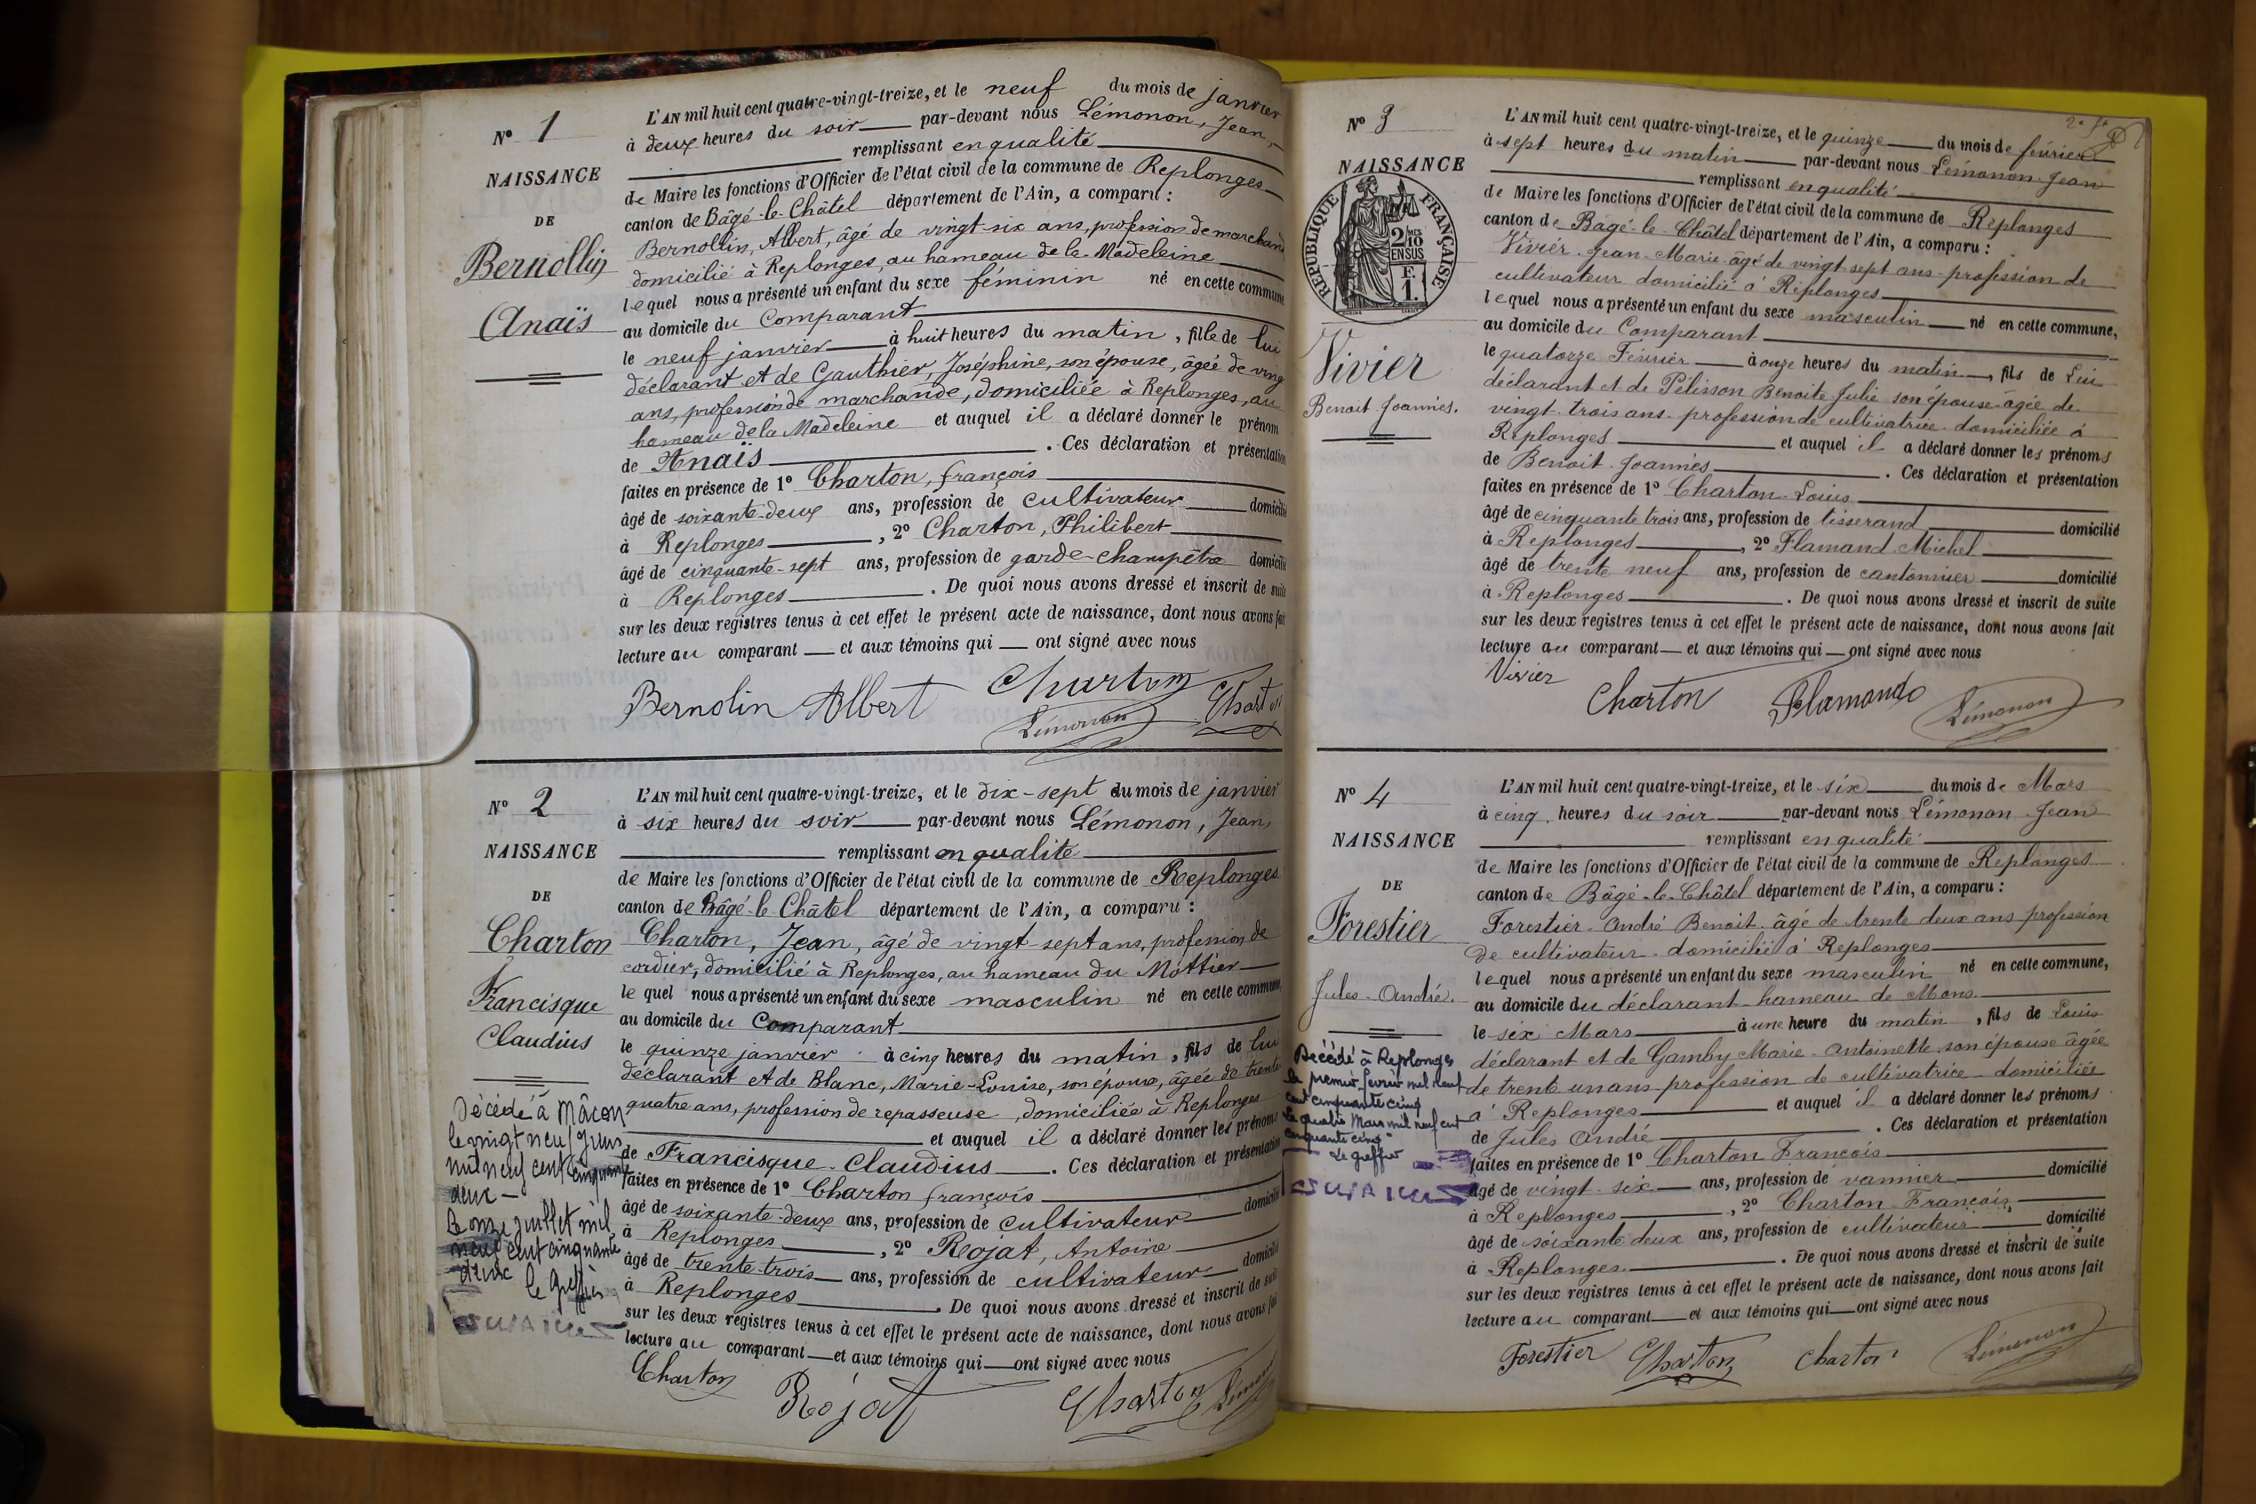 N° 1
NAISSANCE
DE
Bernollin
Anaïs
L'AN mil huit cent quatre-vingt-treize, et le neuf du mois de janvier
à deux heures du soir par-devant nous Lémonon, Jean,
remplissant en qualité
de Maire les fonctions d'Officier de l'état civil de la commune de Replonges
canton de Bâgé-le-Châtel département de l'Ain, a comparu :
Bernollin, Albert, âgé de vingt-six ans, profession de marchand
domicilié à Replonges, au hameau de la Madeleine
lequel nous a présenté un enfant du sexe féminin né en cette commune
au domicile du Comparant
le neuf janvier à huit heures du matin, fille de lui
déclarant et de Gauthier, Joséphine, son épouse, âgée de vingt
ans, profession de marchande, domiciliée à Replonges, au
hameau de la Madeleine et auquel il a déclaré donner le prénom
de Anaïs . Ces déclaration et présentation
faites en présence de 1° Charton, françois
âgé de soixante-deux ans, profession de cultivateur domicilié
à Replonges , 2° Charton, Philibert
âgé de cinquante-sept ans, profession de garde-champêtre domicilié
à Replonges . De quoi nous avons dressé et inscrit de suite
sur les deux registres tenus à cet effet le présent acte de naissance, dont nous avons fait
lecture au comparant et aux témoins qui ont signé avec nous
Bernolin Albert Charton
Lémonon Charton
N° 2
NAISSANCE
DE
Charton
Francisque
Claudius
Décédé à Mâcon
le vingt neuf Juin
mil neuf cent cinquante
deux -
Le onze juillet mil
neuf cent cinquante
deux
le Greffier
L'AN mil huit cent quatre-vingt-treize, et le dix-sept du mois de janvier
à six heures du soir par-devant nous Lémonon, Jean,
remplissant en qualité
de Maire les fonctions d'Officier de l'état civil de la commune de Replonges
canton de Bâgé-le-Châtel département de l'Ain, a comparu :
Charton, Jean, âgé de vingt-sept ans, profession de
cordier, domicilié à Replonges, au hameau du Mottier
lequel nous a présenté un enfant du sexe masculin né en cette commune,
au domicile du Comparant
le quinze janvier à cinq heures du matin, fils de lui
déclarant et de Blanc, Marie-Louise, son épouse, âgée de trente
quatre ans, profession de repasseuse, domiciliée à Replonges
et auquel il a déclaré donner les prénoms
de Francisque-Claudius . Ces déclaration et présentation
faites en présence de 1° Charton françois
âgé de soixante-deux ans, profession de cultivateur domicilié
à Replonges , 2° Rojat, Antoine
âgé de trente-trois ans, profession de cultivateur domicilié
à Replonges . De quoi nous avons dressé et inscrit de suite
sur les deux registres tenus à cet effet le présent acte de naissance, dont nous avons fait
lecture au comparant et aux témoins qui ont signé avec nous
Charton Rojat Charton Lémonon
N° 3
NAISSANCE
RÉPUBLIQUE FRANÇAISE
2/10 EN SUS
F. 1.
Vivier
Benoit Joannès.
L'AN mil huit cent quatre-vingt-treize, et le quinze du mois de février
à sept heures du matin par-devant nous Lémonon Jean
remplissant en qualité
de Maire les fonctions d'Officier de l'état civil de la commune de Replonges
canton de Bâgé-le-Châtel département de l'Ain, a comparu :
Vivier Jean-Marie âgé de vingt-sept ans profession de
cultivateur domicilié à Replonges
lequel nous a présenté un enfant du sexe masculin né en cette commune,
au domicile du Comparant
le quatorze Février à onze heures du matin, fils de Lui
déclarant et de Pélisson Benoite Julie son épouse âgée de
vingt-trois ans profession de cultivatrice domiciliée à
Replonges et auquel il a déclaré donner les prénoms
de Benoit Joannès . Ces déclaration et présentation
faites en présence de 1° Charton Louis
âgé de cinquante trois ans, profession de tisserand domicilié
à Replonges , 2° Flamand Michel
âgé de trente neuf ans, profession de cantonnier domicilié
à Replonges . De quoi nous avons dressé et inscrit de suite
sur les deux registres tenus à cet effet le présent acte de naissance, dont nous avons fait
lecture au comparant et aux témoins qui ont signé avec nous
Vivier
Charton Flamand Lémonon
N° 4
NAISSANCE
DE
Forestier
Jules-André.
Décédé à Replonges
le premier février mil neuf
cent cinquante cinq
Le quatre Mars mil neuf cent
cinquante cinq
Le Greffier
L'AN mil huit cent quatre-vingt-treize, et le six du mois de Mars
à cinq heures du soir par-devant nous Lémonon Jean
remplissant en qualité
de Maire les fonctions d'Officier de l'état civil de la commune de Replonges
canton de Bâgé-le-Châtel département de l'Ain, a comparu :
Forestier André Benoit âgé de trente deux ans profession
de cultivateur domicilié à Replonges
lequel nous a présenté un enfant du sexe masculin né en cette commune,
au domicile du déclarant hameau de Mons
le six Mars à une heure du matin, fils de Louis
déclarant et de Gamby Marie-Antoinette son épouse âgée
de trente un ans profession de cultivatrice domiciliée
à Replonges et auquel il a déclaré donner les prénoms
de Jules André . Ces déclaration et présentation
faites en présence de 1° Charton François
âgé de vingt-six ans, profession de vannier domicilié
à Replonges , 2° Charton François
âgé de soixante deux ans, profession de cultivateur domicilié
à Replonges . De quoi nous avons dressé et inscrit de suite
sur les deux registres tenus à cet effet le présent acte de naissance, dont nous avons fait
lecture au comparant et aux témoins qui ont signé avec nous
Forestier Charton Charton Lémonon